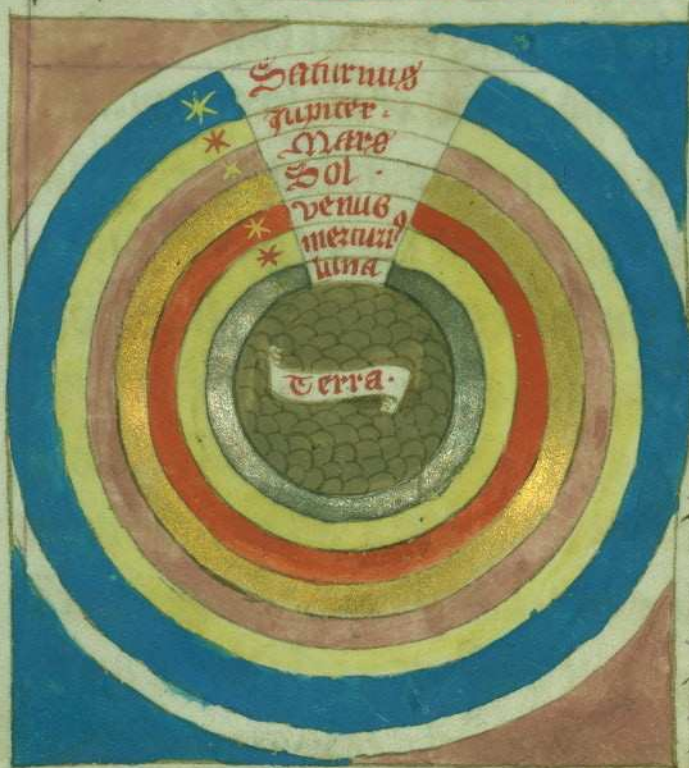 Saturnus
Jupiter.
Mars
Sol.
venus
mercuriꝰ
luna
Terra.